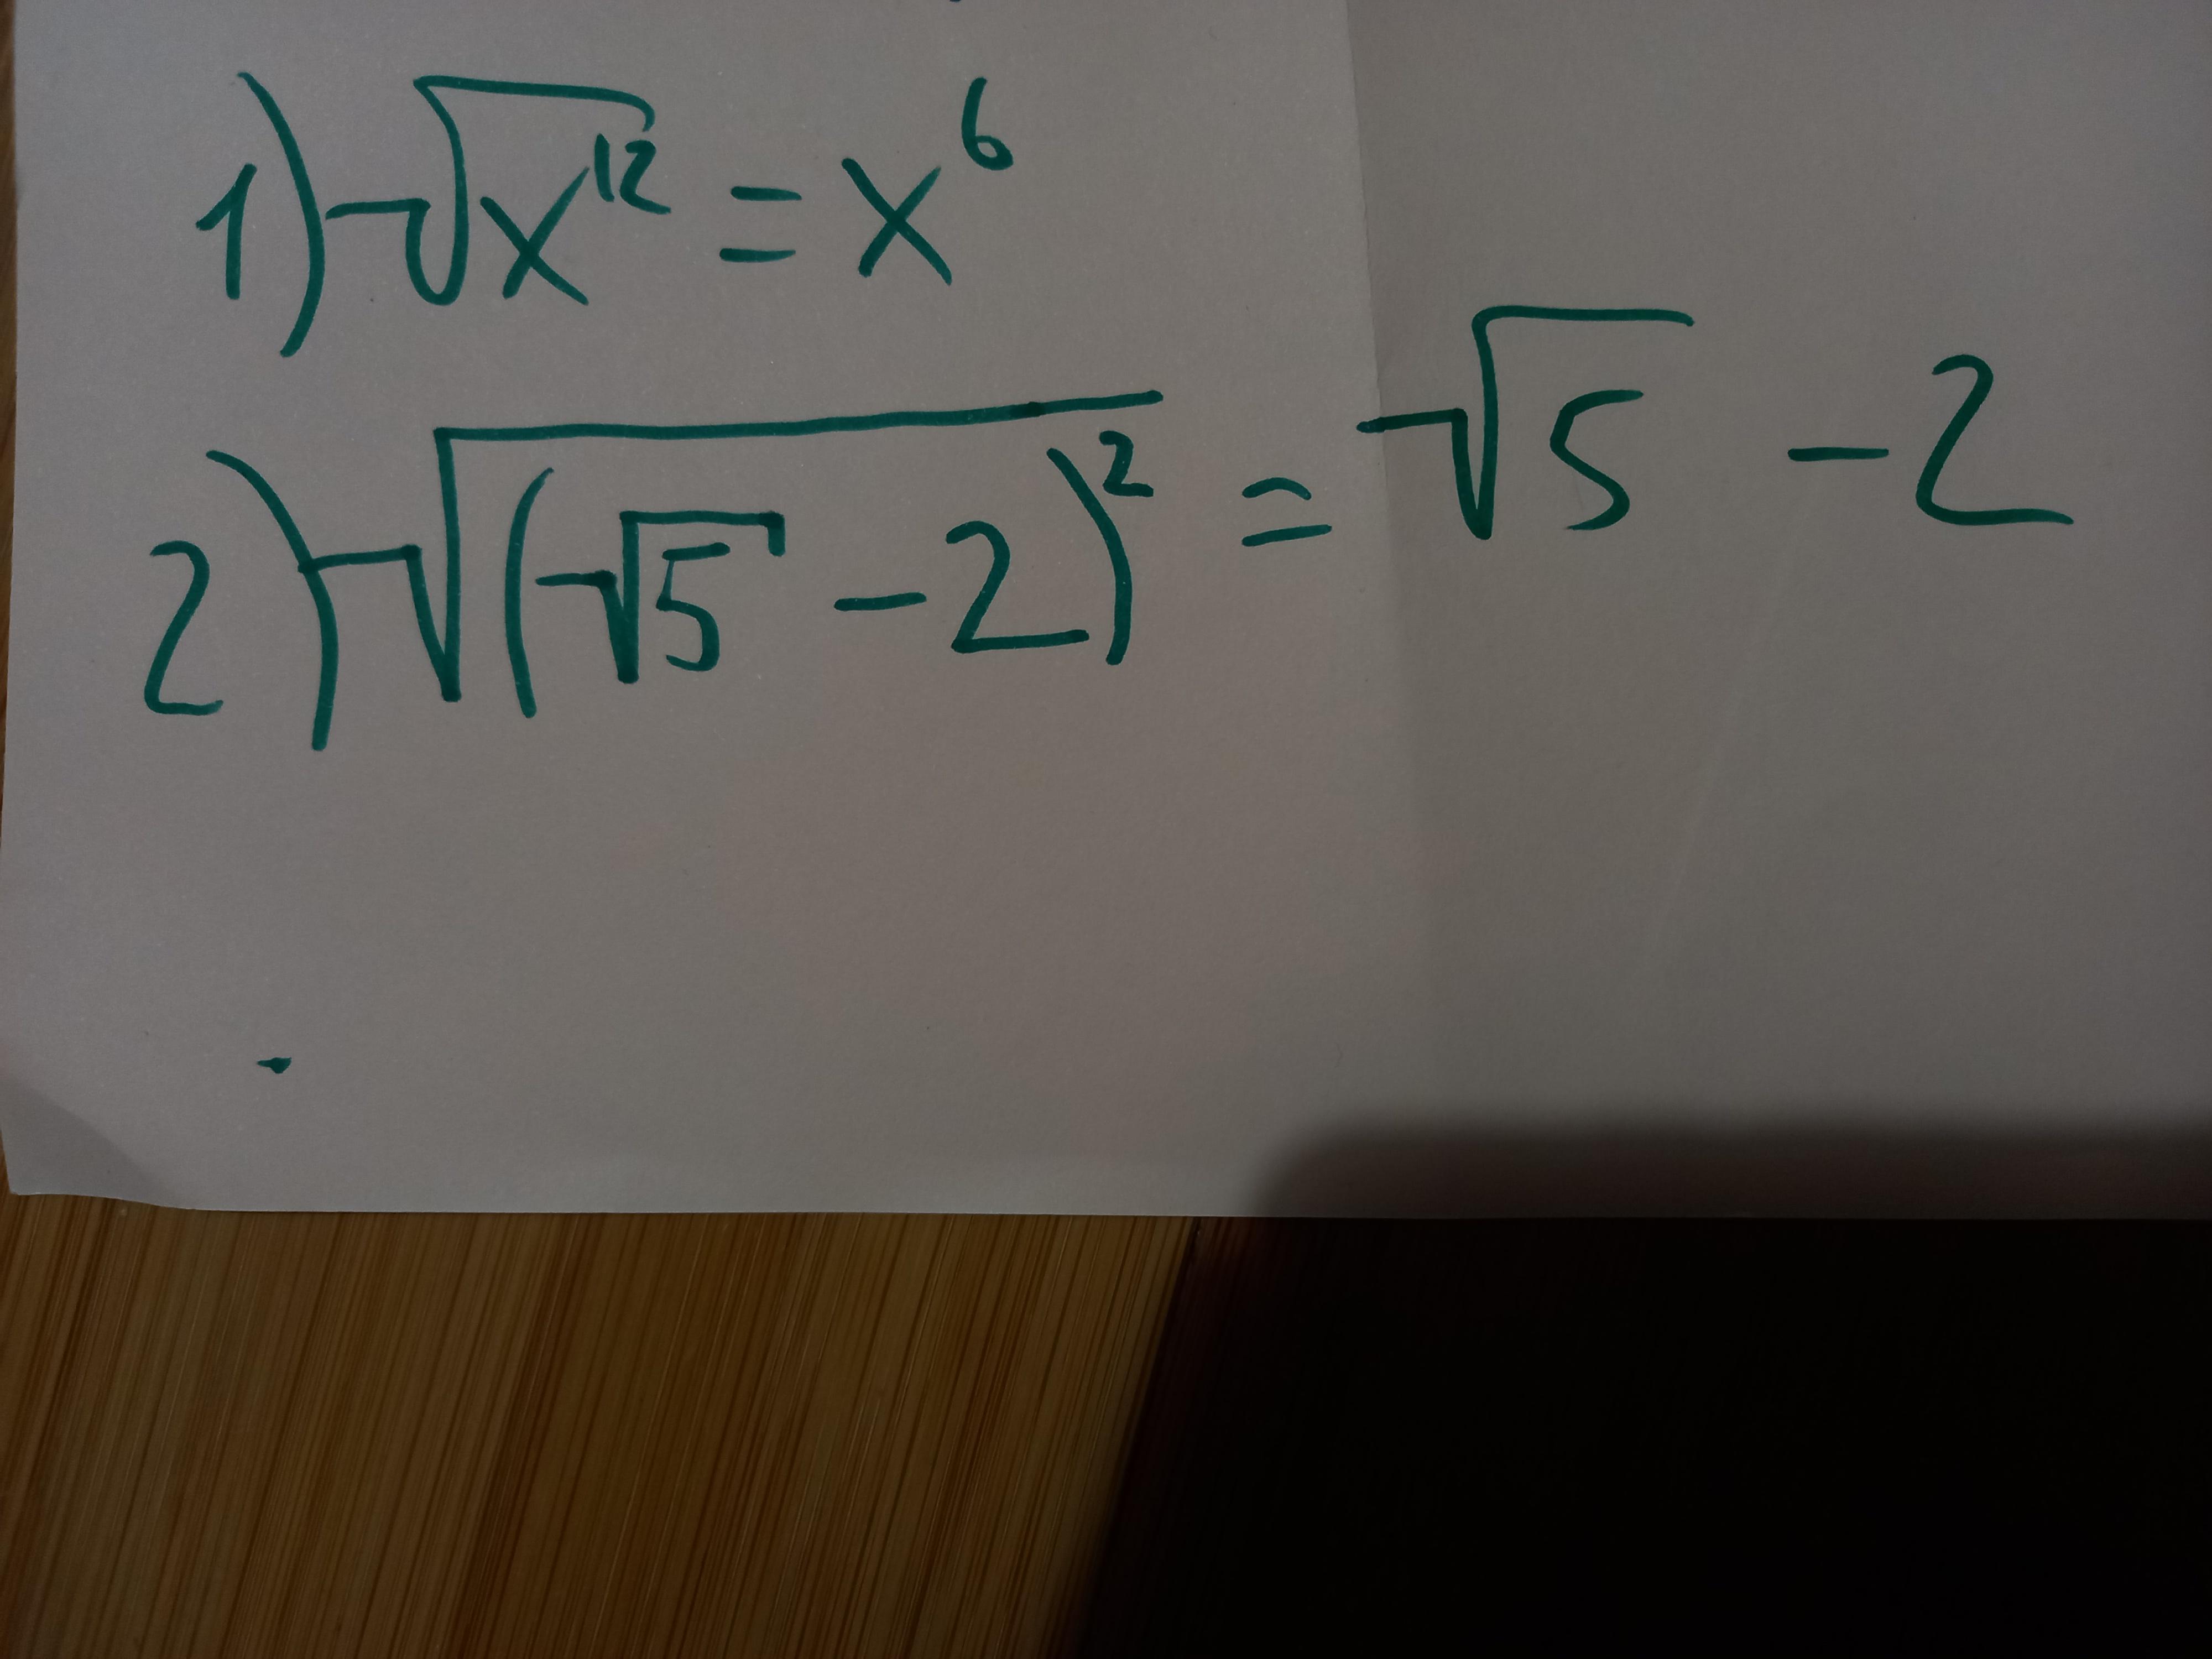 1) √x¹² = x⁶
2) √(√5 - 2)² = √5 - 2